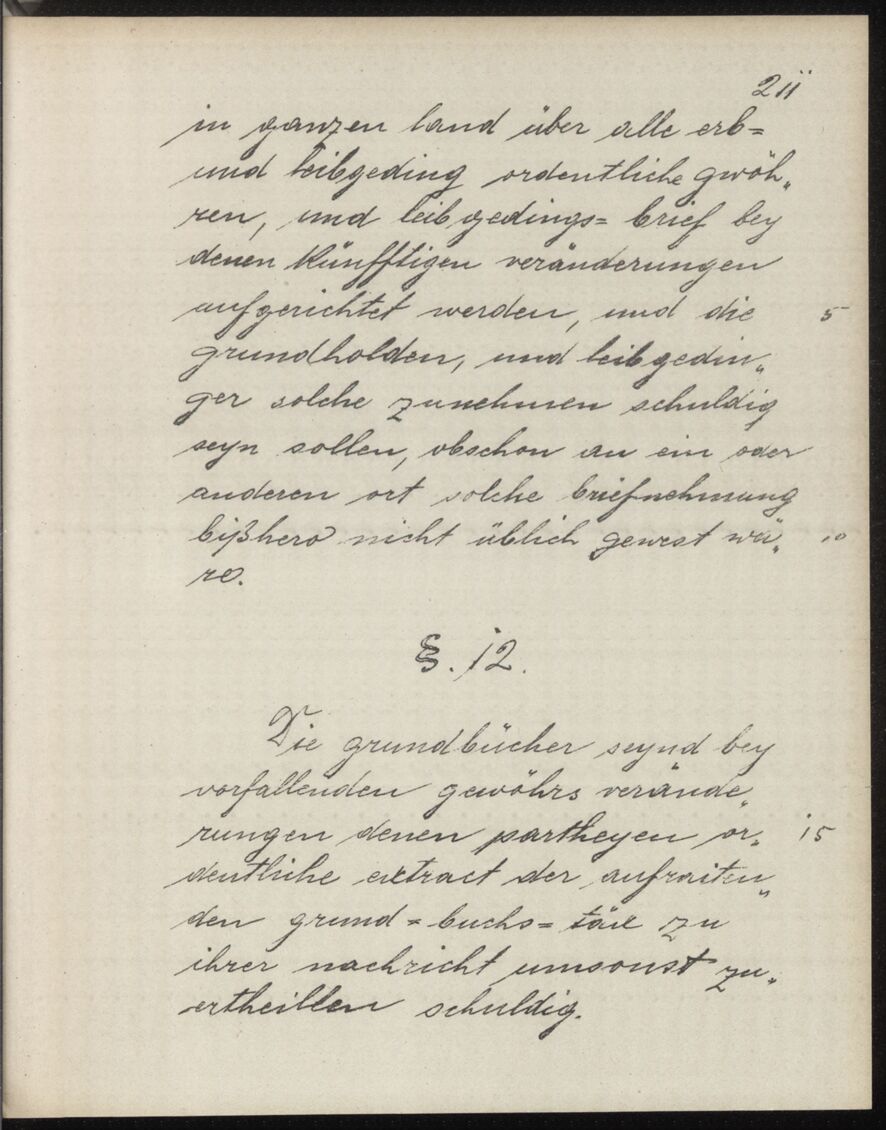 211
in ganzen land über alle erb=
und leibgeding ordentliche gwöh„
ren, und leibgedings= brief bey
denen künfftigen veränderungen
aufgerichtet werden, und die 5
grundholden, und leibgedin„
ger solche zunehmen schuldig
seyn sollen, obschon an ein oder
anderen ort solche briefnehmung
bißhero nicht üblich gewest wä„ 10
re.
§. 12.
Die grundbücher seynd bey
vorfallenden gewöhrs verände„
rungen denen partheyen or„ 15
dentliche extract der aufraiten„
den grund=buchs=täx zu
ihrer nachricht umsonst zu„
ertheillen schuldig.